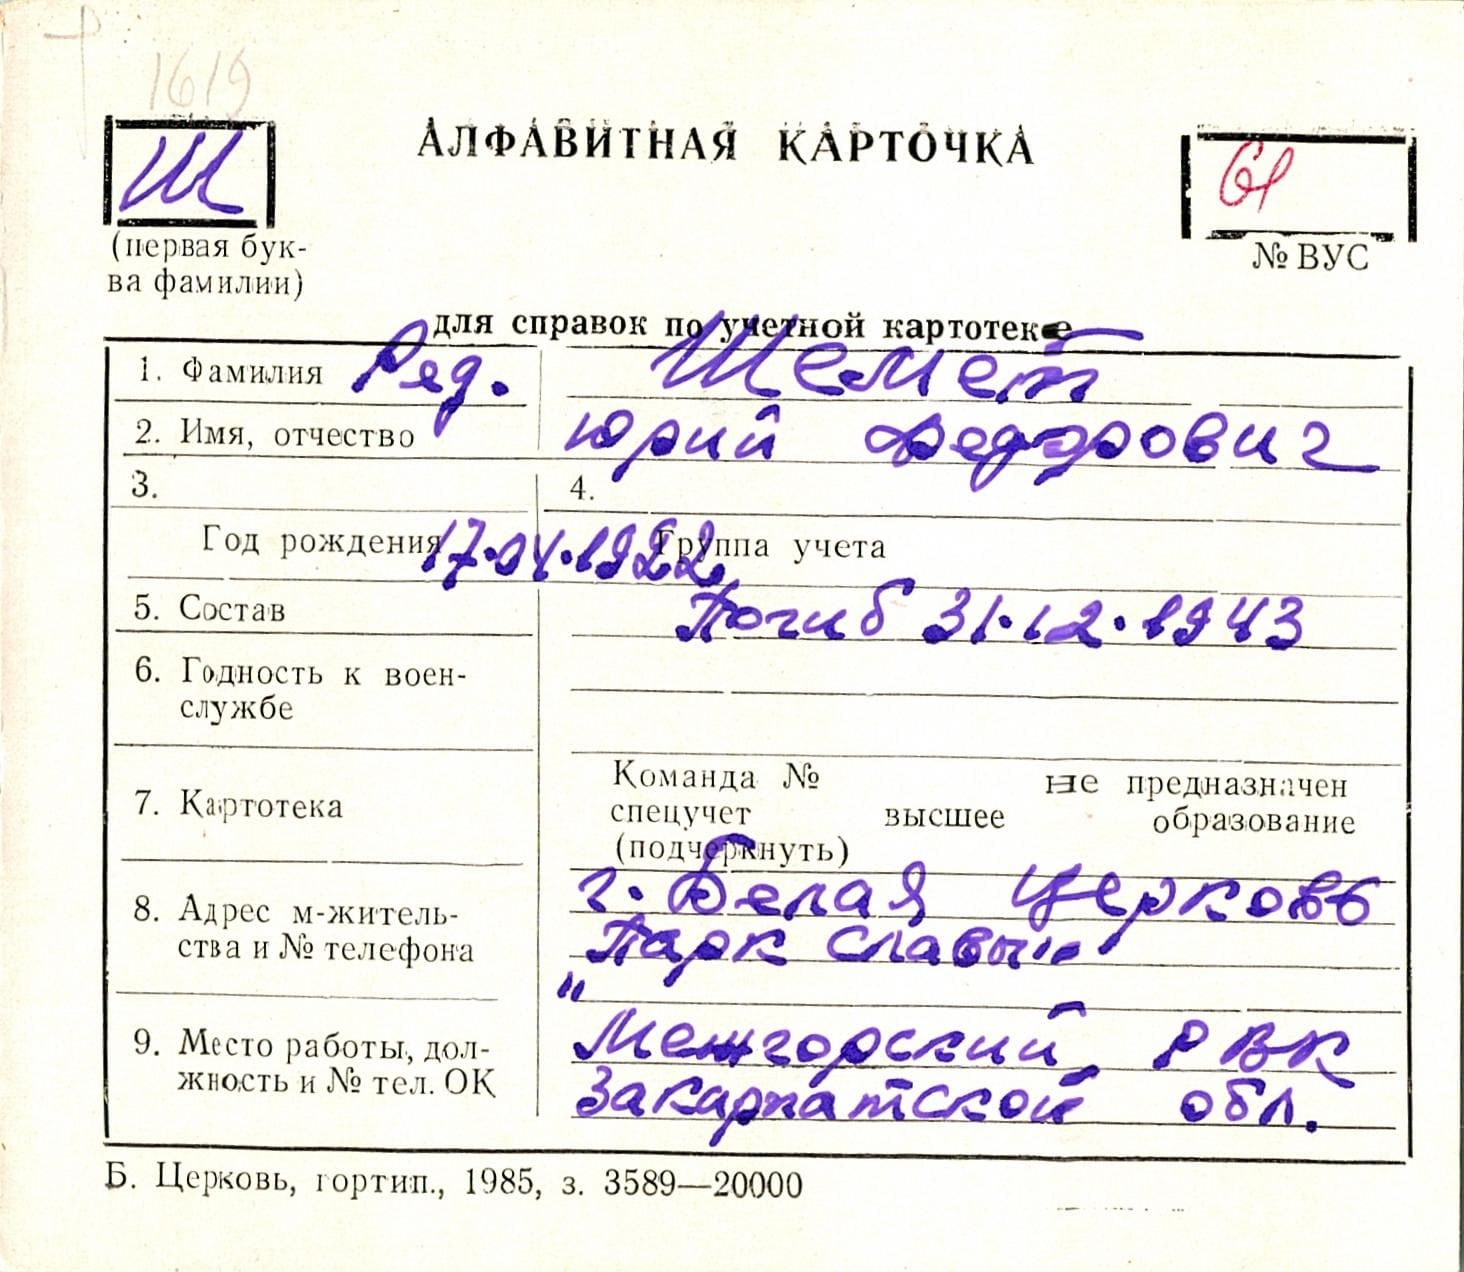 1619
Ш
АЛФАВИТНАЯ КАРТОЧКА
61
(первая бук-
ва фамилии)
№ ВУС
для справок по учетной картотеке
1. Фамилия Ряд. Шемет
2. Имя, отчество Юрий Федорович
3. 4.
Год рождения 17.04.1922 Группа учета
5. Состав Погиб 31.12.1943
6. Годность к воен-
службе
7. Картотека
Команда № не предназначен
спецучет высшее образование
(подчеркнуть)
8. Адрес м-житель-
ства и № телефона
г. Белая Церковь
Парк Славы"
"
9. Место работы, дол-
жность и № тел. ОК
Межгорский РВК
Закарпатской обл.
Б. Церковь, гортип., 1985, з. 3589—20000